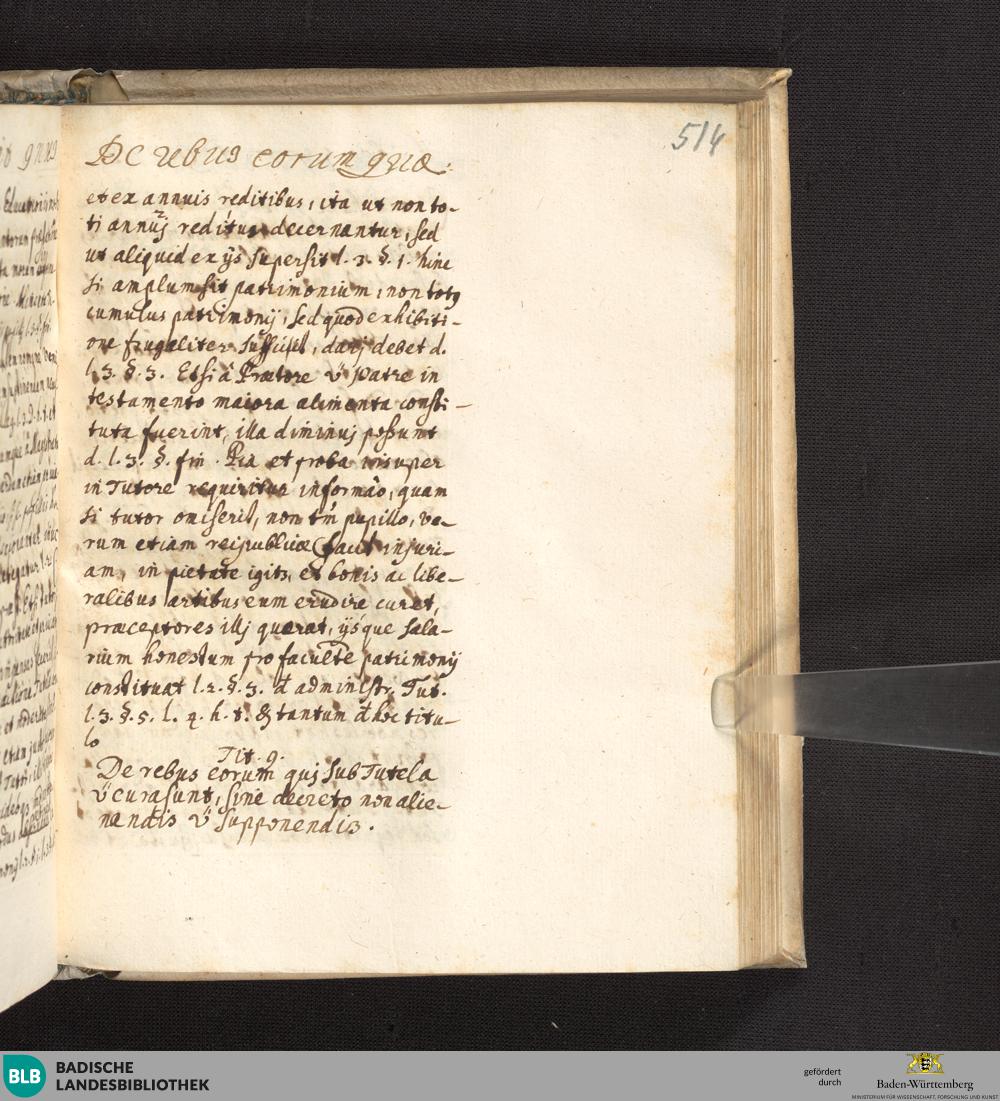 514
De rebus eorum quæ.
et ex annuis reditibus, ita ut non to-
ti annuj reditus decernantur, sed
ut aliquid ex ijs supersit l. 3. §. 1. hinc
si amplum sit patrimonium, non totq
cumulus patrimonij, sed quod exhibiti-
one frugaliter sufficit, darj debet d.
l. 3. §. 3. Etsi â Prætore v Patre in
testamento maiora alimenta consti-
tuta fuerint, illa diminuj possunt
d. l. 3. §. fin. Pia et proba insuper
in Tutore requiritur informão, quam
si tutor omiserit, non tm pupillo, ve-
rum etiam reipublicæ facit injuri-
am, in pietate igitr, et bonis ac libe-
ralibus artibus eum erudire curet,
præceptores illj quærat, ijsque sala-
rium honestum pro facultē patrimonij
constituat l. 2. §. 3. đ administr. Tut.
l. 3. §. 5. l. 4. h. t. & tantum đ hoc titu-
lo
Tit. 9.
De rebus eorum quj sub Tutela
v cura sunt, sine decreto non alie-
nandis v supponendis.
BLB
BADISCHE
LANDESBIBLIOTHEK
gefördert
durch
Baden-Württemberg
MINISTERIUM FÜR WISSENSCHAFT, FORSCHUNG UND KUNST